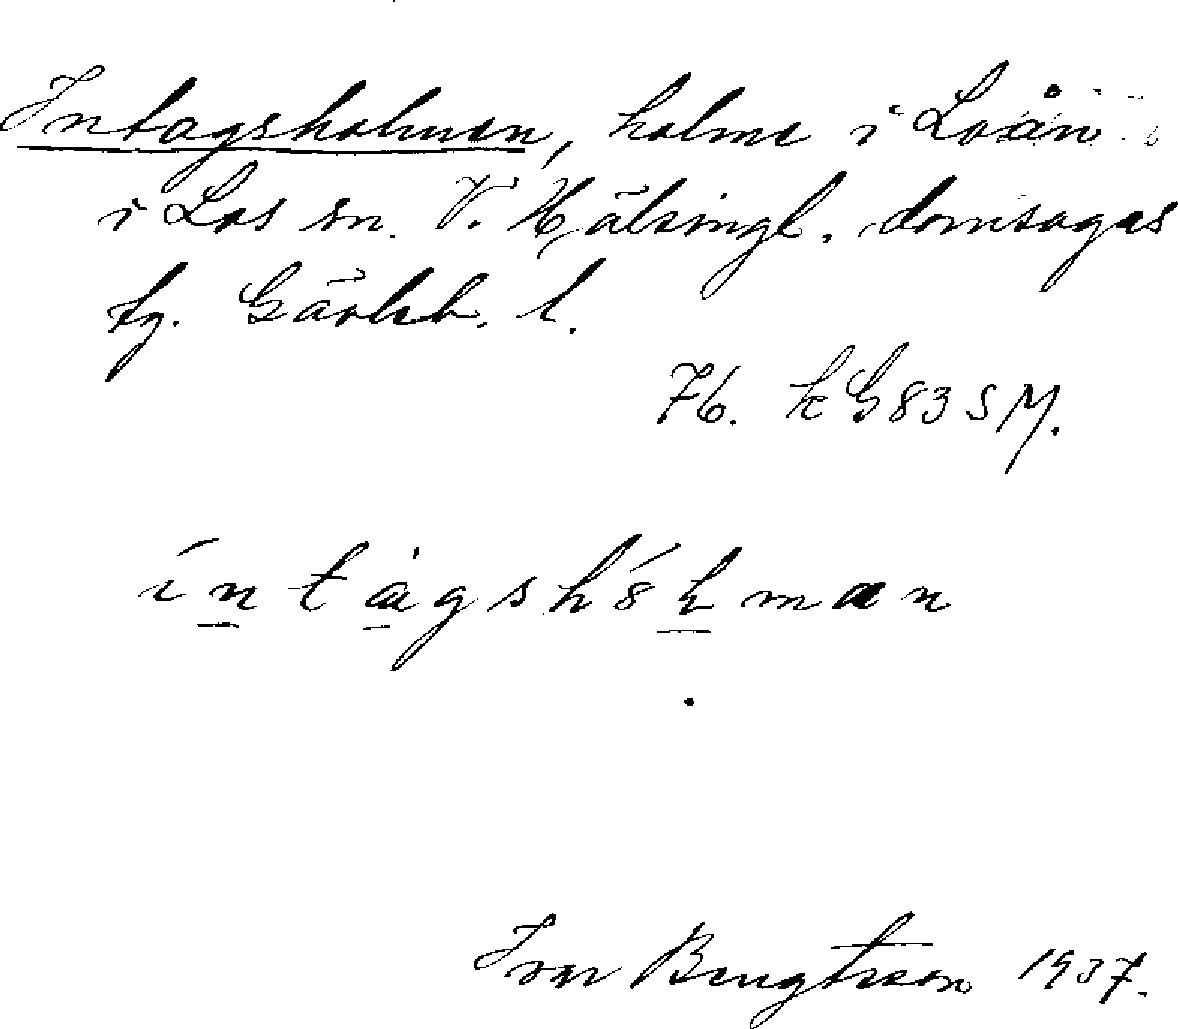 Intagsholmen, holme i Loån
i Los sn. V. Hälsingl. domsagas
tg. Gävleb. l.
76. k G 83 S M.
íntàgshó
Ivar Bengtsson 1937.